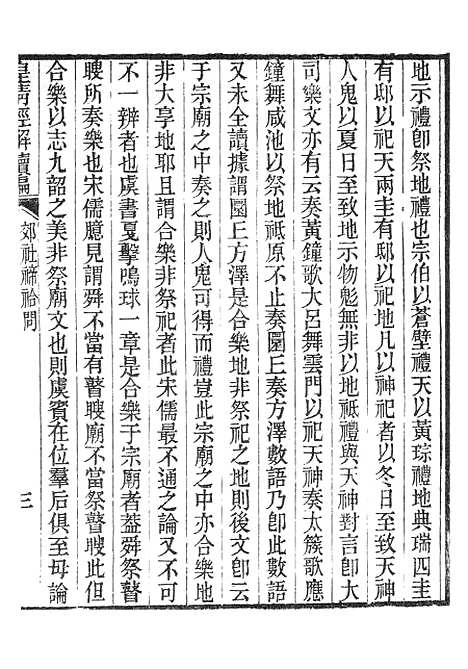 地示禮卽祭地禮也宗伯以蒼璧禮天以黃琮禮地典瑞四圭
有邸以祀天兩圭有邸以祀地凡以神祀者以冬日至致天神
人鬼以夏日至致地示物鬽無非以地祇禮與天神對言卽大
司樂文亦有云奏黃鐘歌大呂舞雲門以祀天神奏太簇歌應
鐘舞咸池以祭地祇原不止奏圜丘奏方澤數語乃卽此數語
又未全讀據謂圜丘方澤是合樂地非祭祀之地則後文卽云
于宗廟之中奏之則人鬼可得而禮豈此宗廟之中亦合樂地
非大享地耶且謂合樂非祭祀者此宋儒最不通之論又不可
不一辯者也虞書戛擊鳴球一章是合樂于宗廟者葢舜祭瞽
瞍所奏樂也宋儒臆見謂舜不當有瞽瞍廟不當祭瞽瞍此但
合樂以志九韶之美非祭廟文也則虞賓在位羣后俱至毋論
皇淸經解續編
郊社禘祫問
三